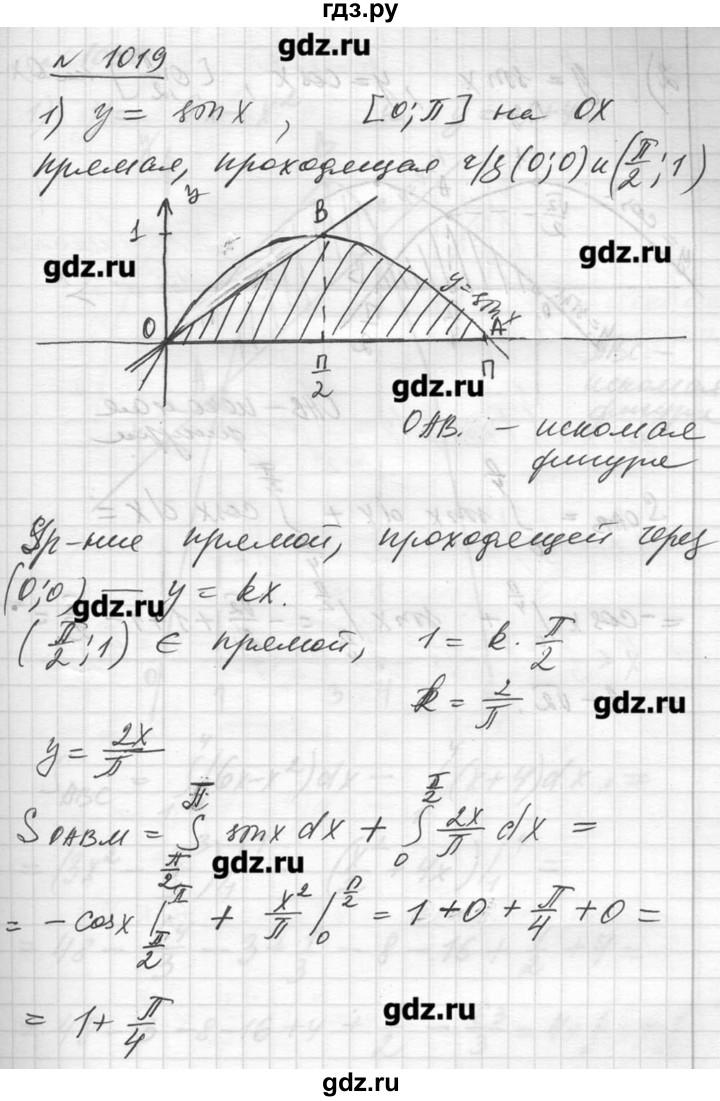 гдз.ру
gdz.ru
№ 1019
1) y = sin x , [0;П] на OX
прямая, проходящая ч/з (0;0) и (π/2 ; 1)
y
B
1
gdz.ru
gdz.ru
y = sin x
O
A
π/2
П
gdz.ru
OAB. – искомая
фигура
Ур-ние прямой, проходящей через
(0;0) — y = kx.
gdz.ru
(π/2 ; 1) ∈ прямой, 1 = k · π/2
k = 2/π.
gdz.ru
y = 2x/π
S OABM = ∫_{π/2}^{π} sin x dx + ∫_0^{π/2} 2x/π dx =
gdz.ru
= - cos x |_{π/2}^{π} + x²/π |_0^{π/2} = 1 + 0 + π/4 + 0 =
= 1 + π/4
gdz.ru
gdz.ru